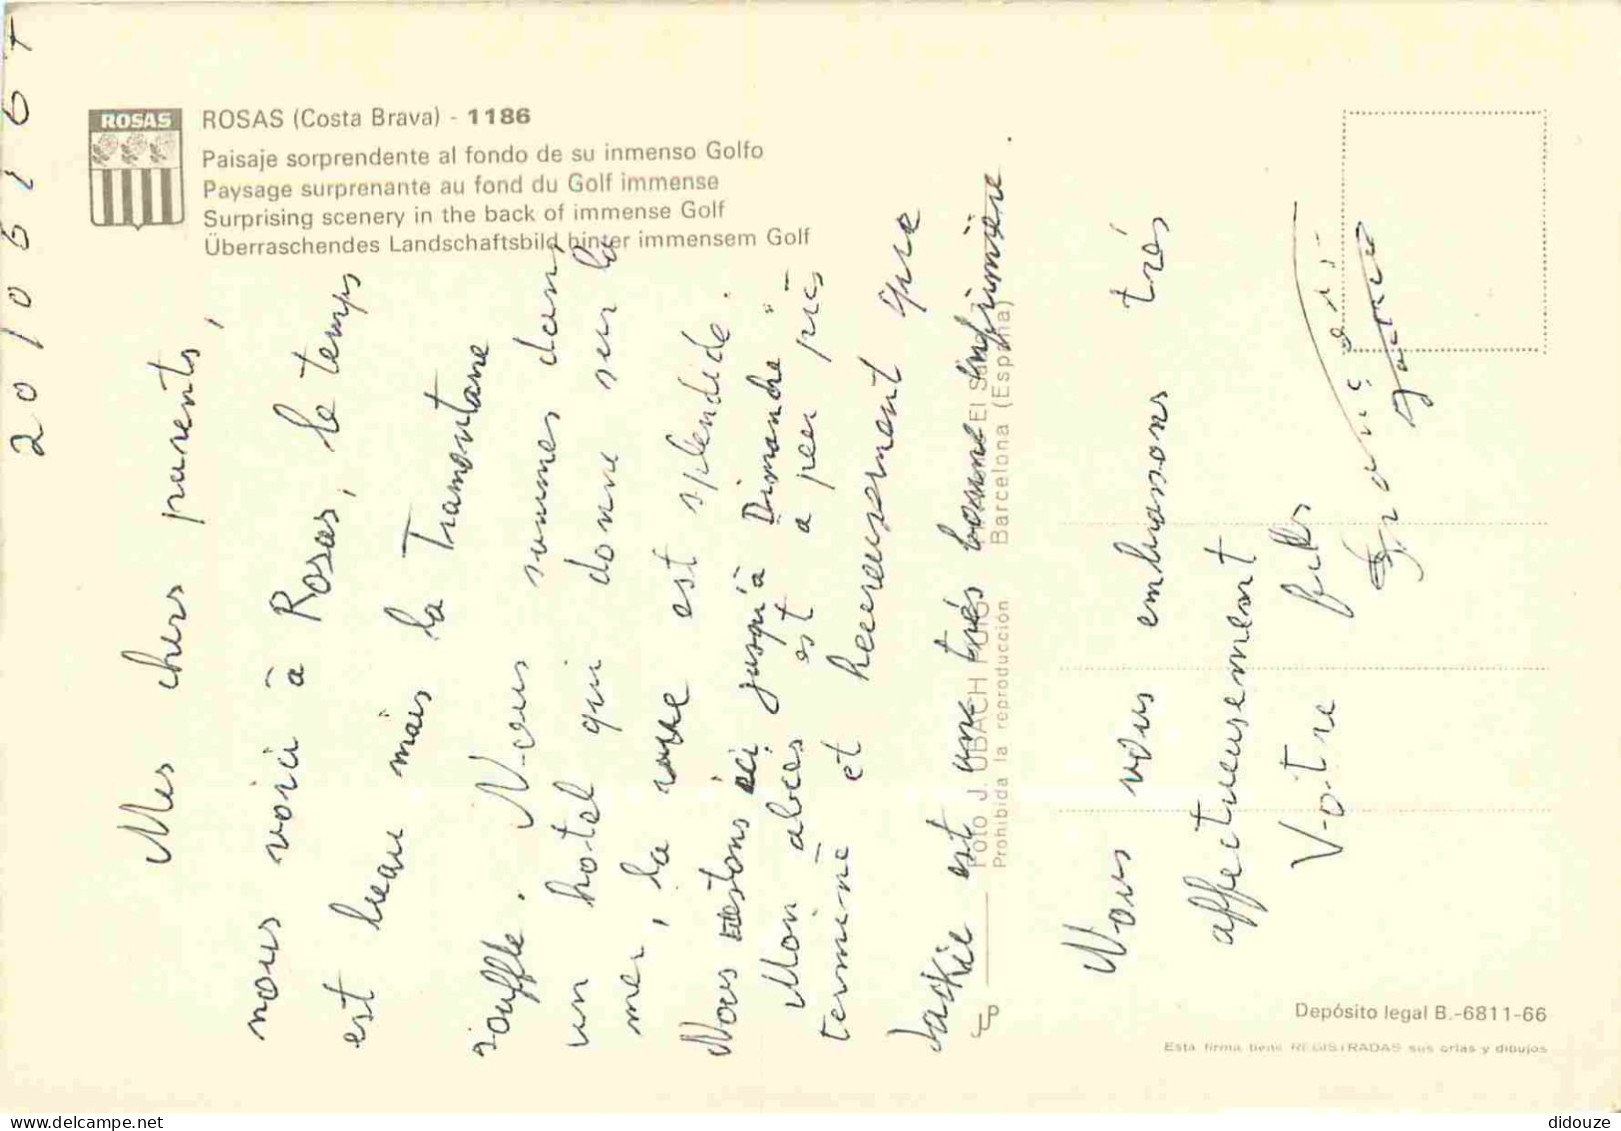 ROSAS
ROSAS (Costa Brava) - 1186
Paisaje sorprendente al fondo de su inmenso Golfo
Paysage surprenante au fond du Golf immense
Surprising scenery in the back of immense Golf
Überraschendes Landschaftsbild hinter immensem Golf
Mes chers parents,
nous voici à Rosas, le temps
est beau mais la Tramontane
souffle. Nous sommes dans
un hotel qui donne sur la
mer, la vue est splendide.
Nous restons ici jusqu'à Dimanche.
Mon abces est a peu près
terminé et heureusement que
Jackie est une très bonne infirmière.
Nous vous embrassons très
affectueusement
Votre fils
Foto J. UBACH PUIG
Barcelona (España)
Prohibida la reproducción
Depósito legal B.-6811-66
Esta firma tiene REGISTRADAS sus orlas y dibujos
didouze